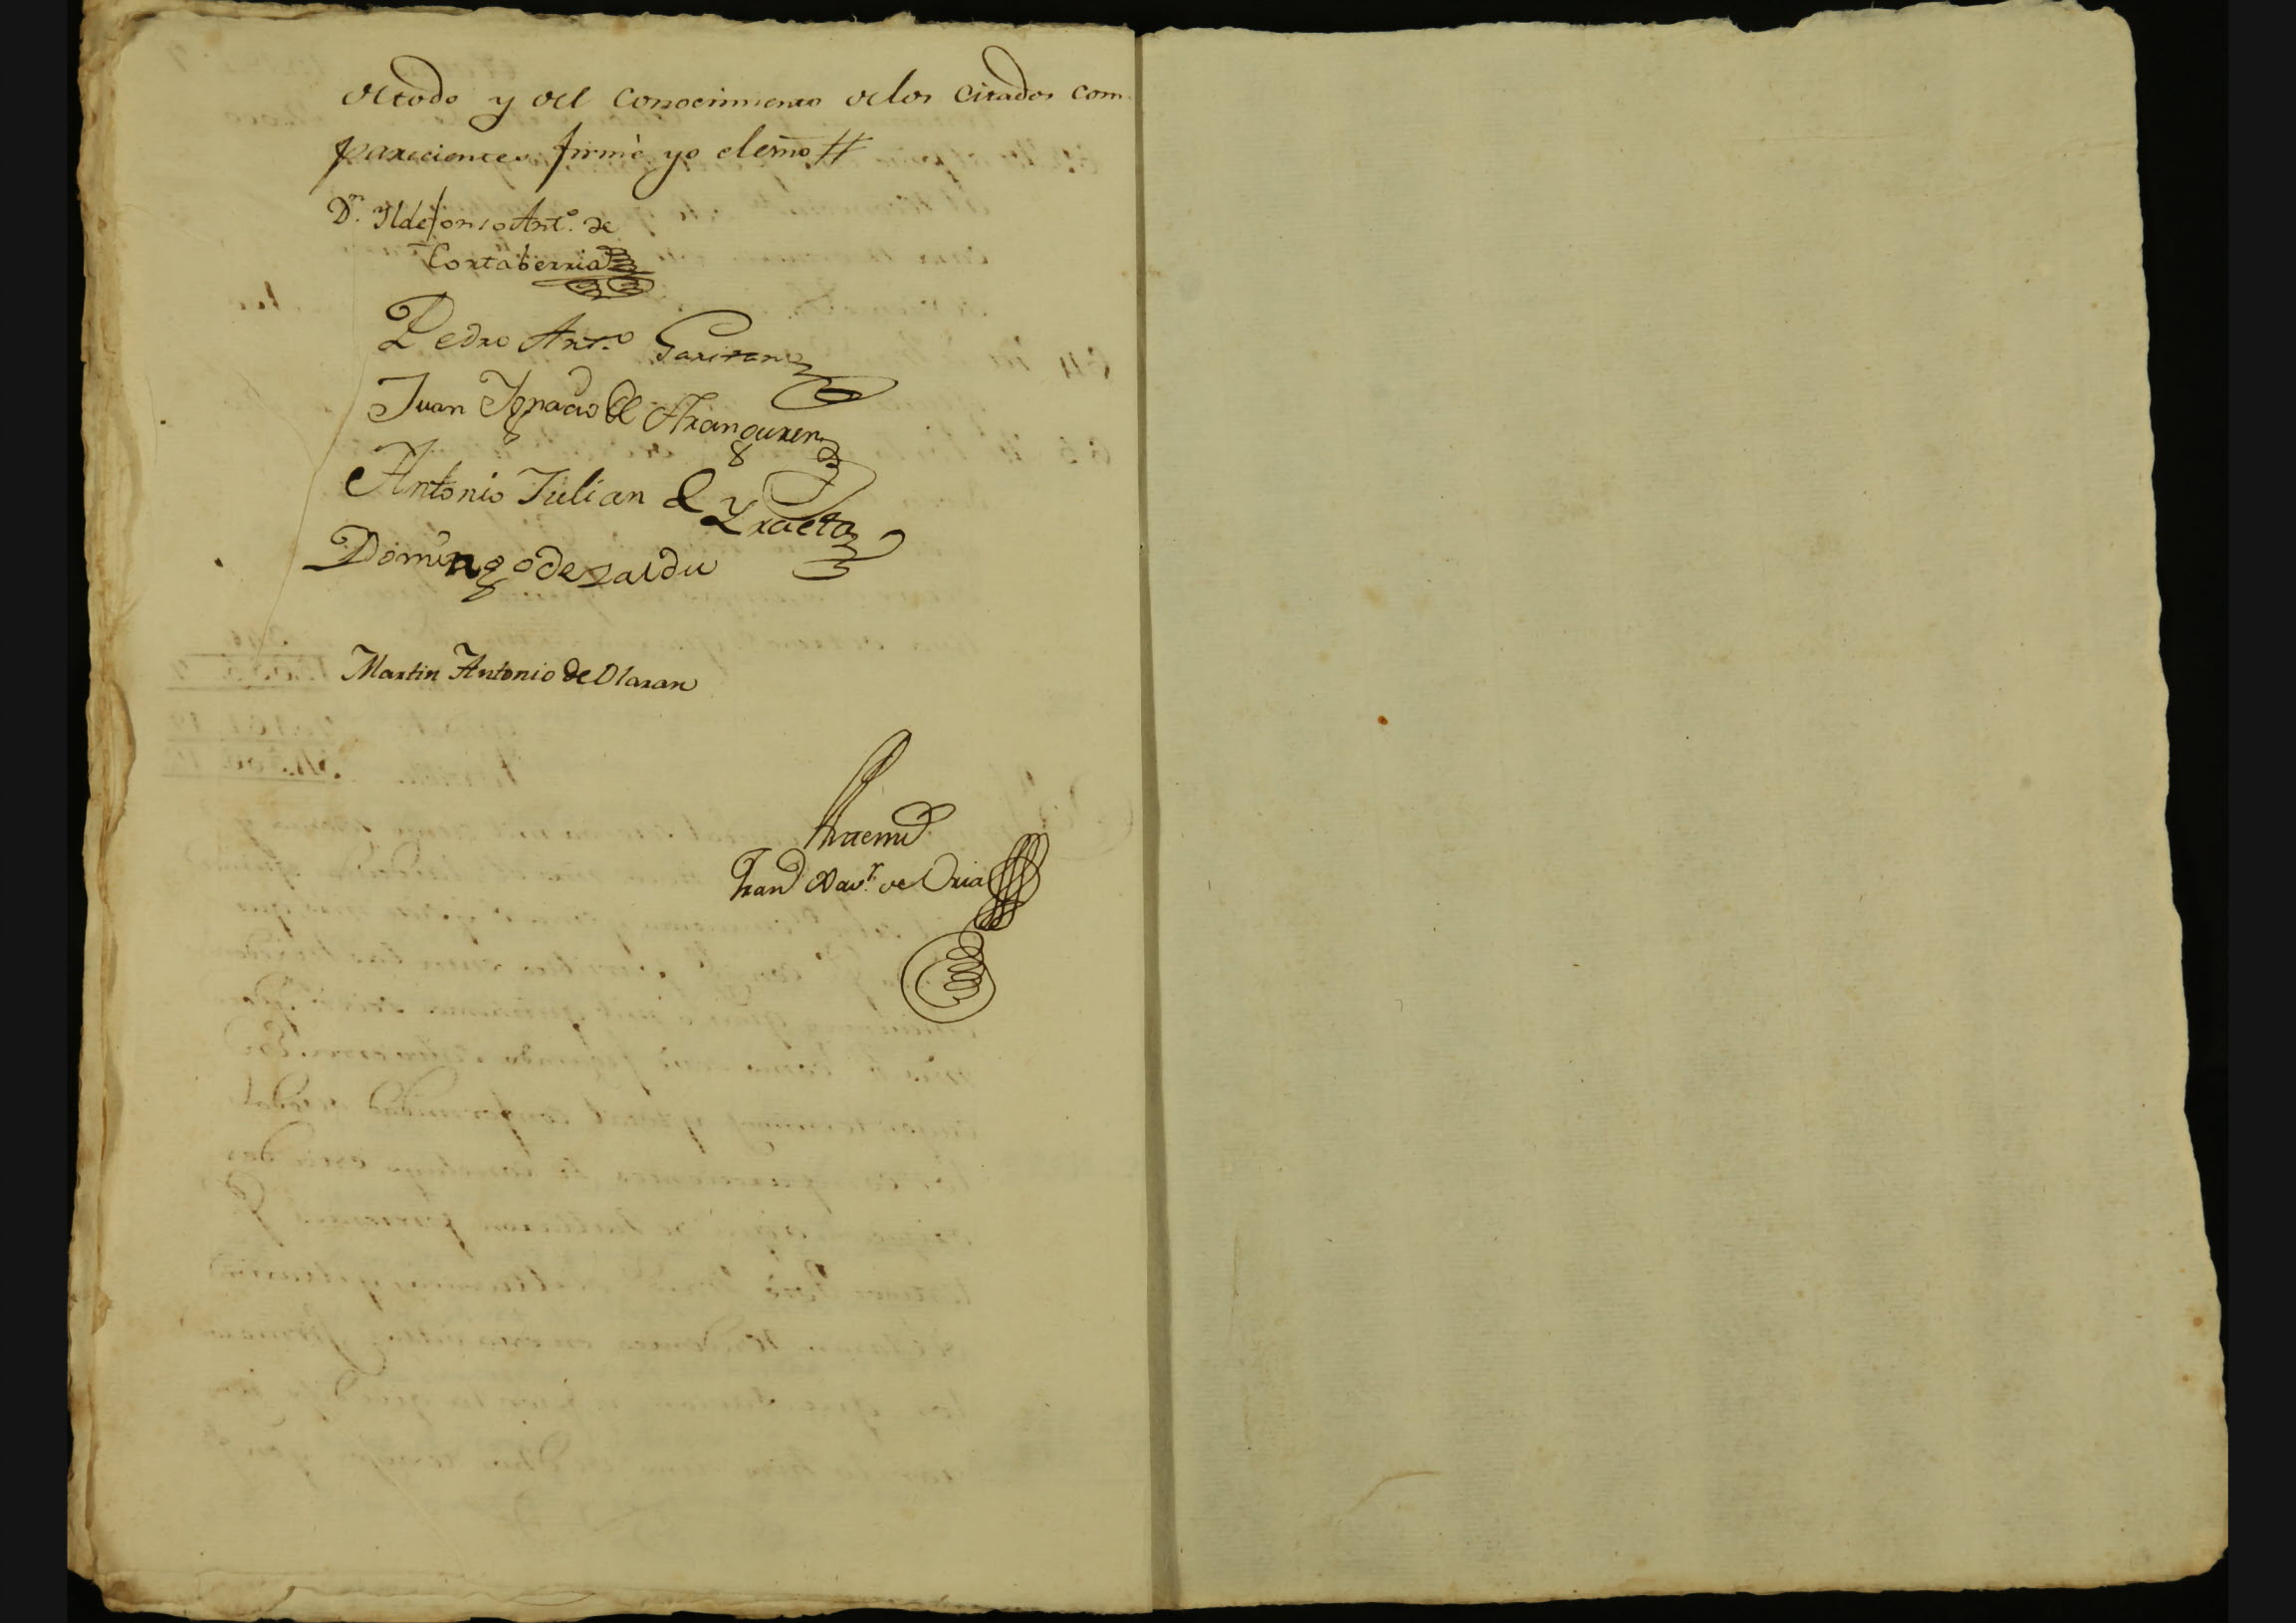 de todo y del Conocimiento de los Citados com
parecientes firmè yo el esno //
Dn. Ildefonso Anto. de
Cortaberria
Pedro Anto. Garitano
Juan Ygnacio de Aranguren
Antonio Julian de Yraeta
Domingo de zaldu
Martin Antonio de Olaran
Ante mi
Franco Xavr. de Oria